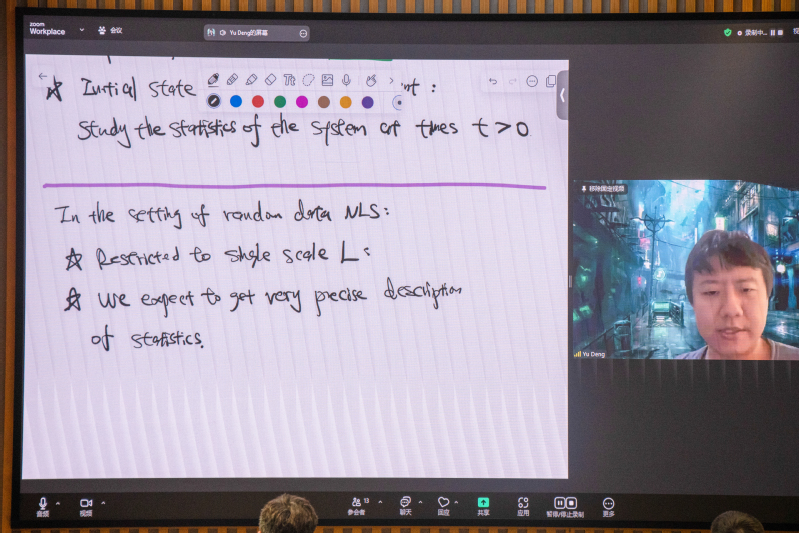 zoom
Workplace
会议
Yu Deng的屏幕
录制中...
☆ Initial state
nt :
Study the statistics of the system at times t > 0
In the setting of random data NLS:
☆ Restricted to single scale L:
☆ We expect to get very precise description
of statistics.
移除固定视频
Yu Deng
音频
视频
13
参会者
聊天
回应
共享
应用
暂停/停止录制
更多